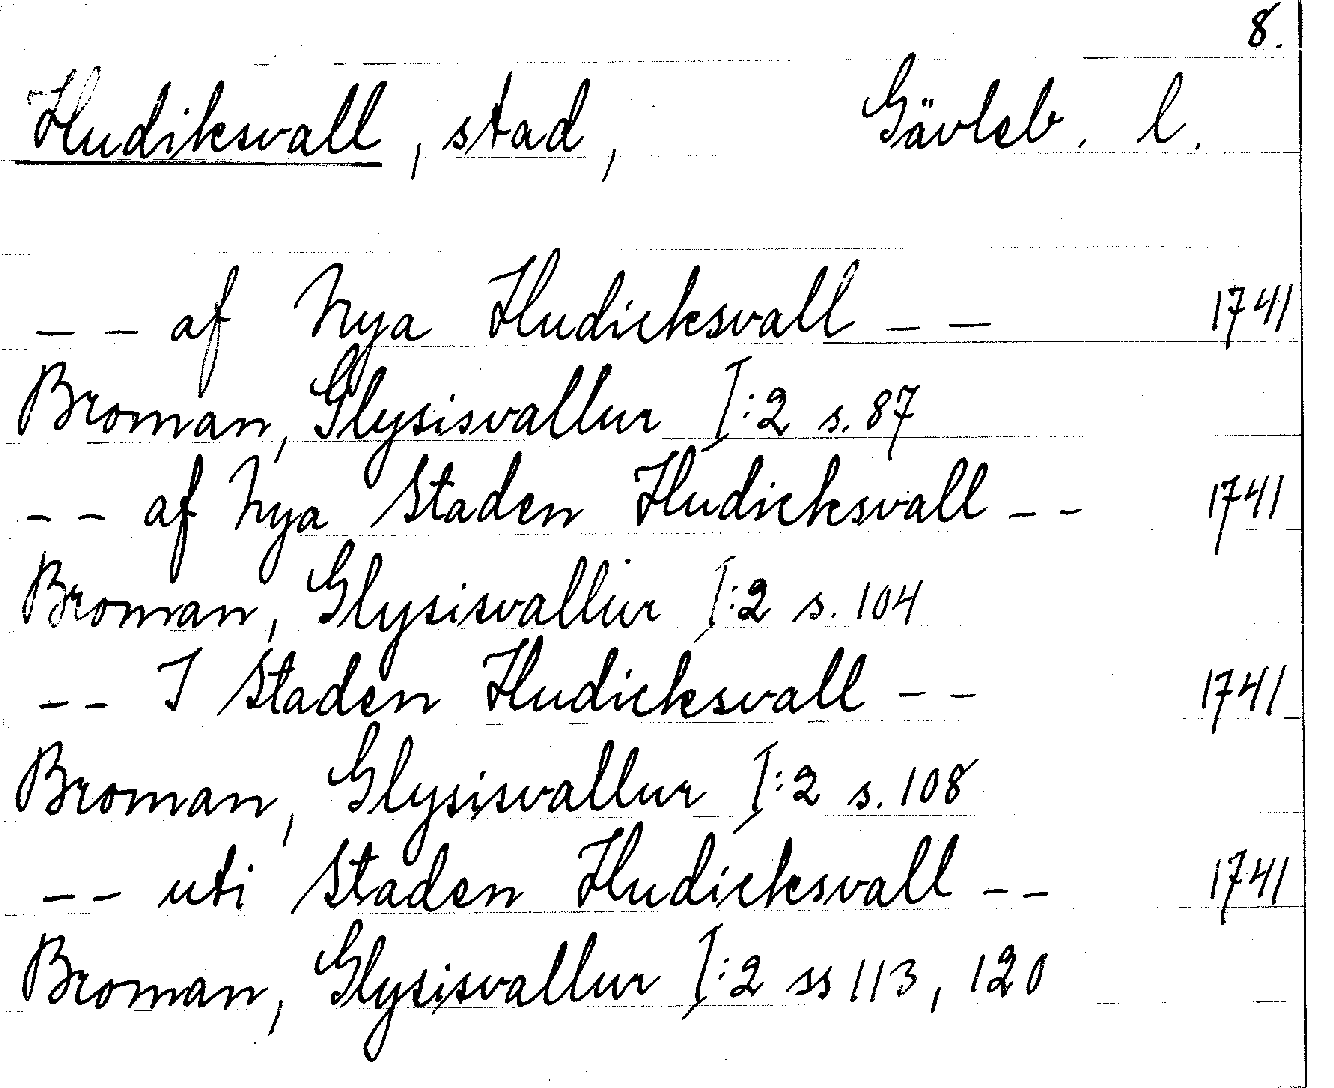 8.
Hudiksvall, stad, Gävleb. l.
– – af Nya Hudicksvall – – 1741
Broman, Glysisvallur I:2 s. 87
– – af Nya Staden Hudicksvall – – 1741
Broman, Glysisvallur I:2 s. 104
– – I Staden Hudicksvall – – 1741
Broman, Glysisvallur I:2 s. 108
– – uti Staden Hudicksvall – – 1741
Broman, Glysisvallur I:2 ss 113, 120